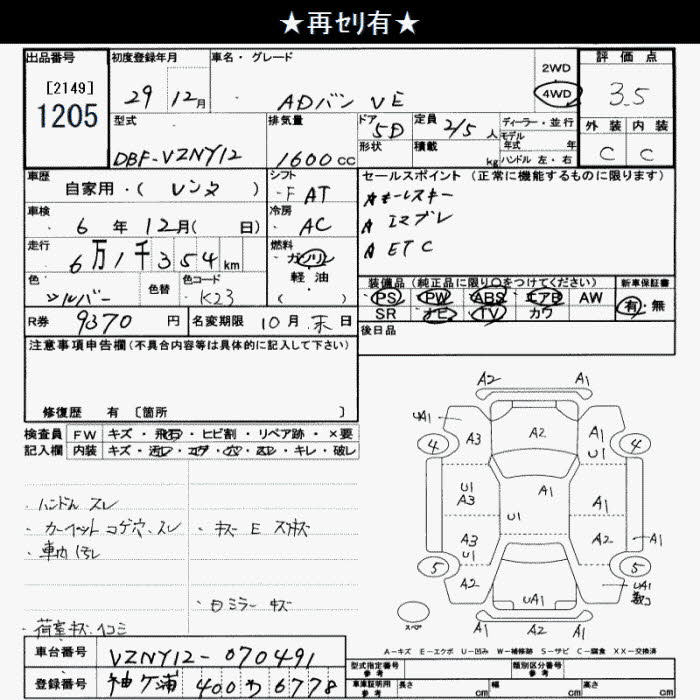 ★再ｾﾘ有★
出品番号 初度登録年月 車名・グレード 評価点
[2149]
1205
29 12月 ADバン VE 2WD 4WD 3.5
型式 排気量 ドア 5D 定員 2/5人 ディーラー・並行 外装 内装
形状 積載 kg モデル年式 年
DBF-VZNY12 1600cc ハンドル 左・右 C C
車歴 シフト セールスポイント(正常に機能するものに限ります)
自家用・( レンタ ) F AT
車検 冷房
6年 12月( 日) AC エマブレ
走行 燃料 ETC
6万1千354km ガソリン
色 色替 色コード 軽油 装備品(純正品に限り○をつけてください) 新車保証書
シルバー K23 ( ) PS PW ABS エアB AW 有・無
R券 9370円 名変期限 10月末日 SR ナビ TV カワ
注意事項申告欄(不具合内容等は具体的に記入して下さい) 後日品
修復歴 有 [箇所 ]
検査員 FW キズ・飛石・ヒビ割・リペア跡・×要
記入欄 内装 キズ・汚レ・コゲ・穴・スレ・キレ・破レ
・ハンドル スレ
・カーペット コゲ穴、スレ ・キズ E スリキズ
・車内 汚レ
・ロミラー キズ
・荷室キズ、ヘコミ
A2 A1
UA1 A3 A2 A1 U1
4 4
U1 A3 A1 A1
U1
A3 U1 A2 A1
5 5
A2 UA1 UA1
スペア A1 A2 A1
A-キズ E-エクボ U-凹み W-補修跡 S-サビ C-腐食 XX-交換済
車台番号 VZNY12-070491 型式指定番号 参考 類別区分番号 参考
登録番号 袖ケ浦 400 わ 6778 車庫証明用 参考 長さ cm 幅 cm 高さ cm